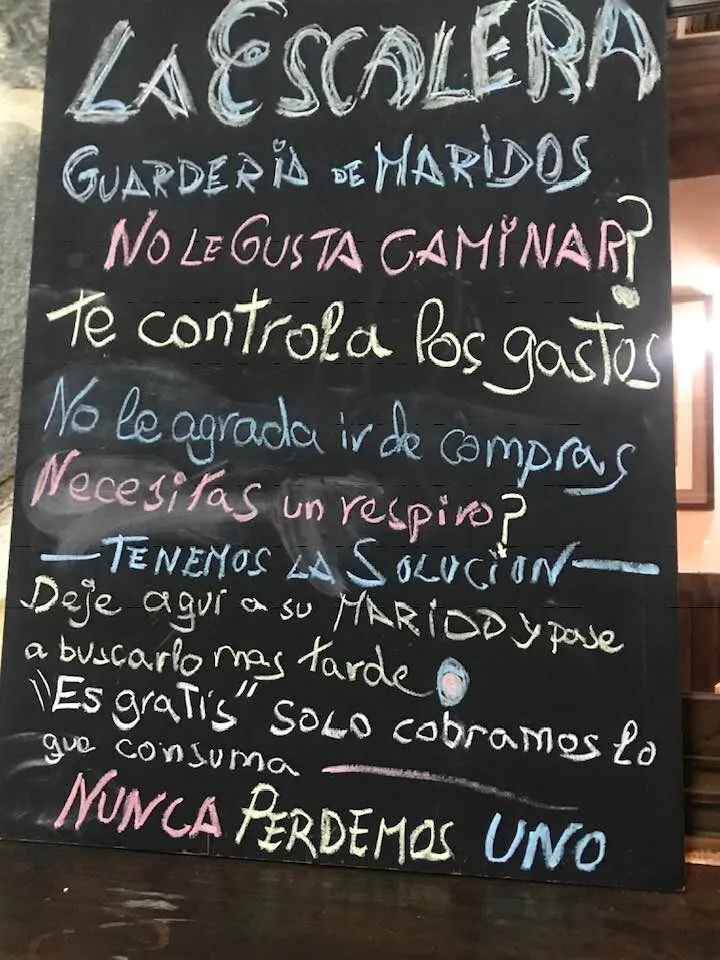 LA ESCALERA
GUARDERIA DE MARIDOS
NO LE GUSTA CAMINAR?
te controla los gastos
No le agrada ir de compras
Necesitas un respiro?
— TENEMOS LA SOLUCION —
Deje aquí a su MARIDO y pase
a buscarlo mas tarde.
"Es gratis" SOLO cobramos lo
que consuma
NUNCA PERDEMOS UNO